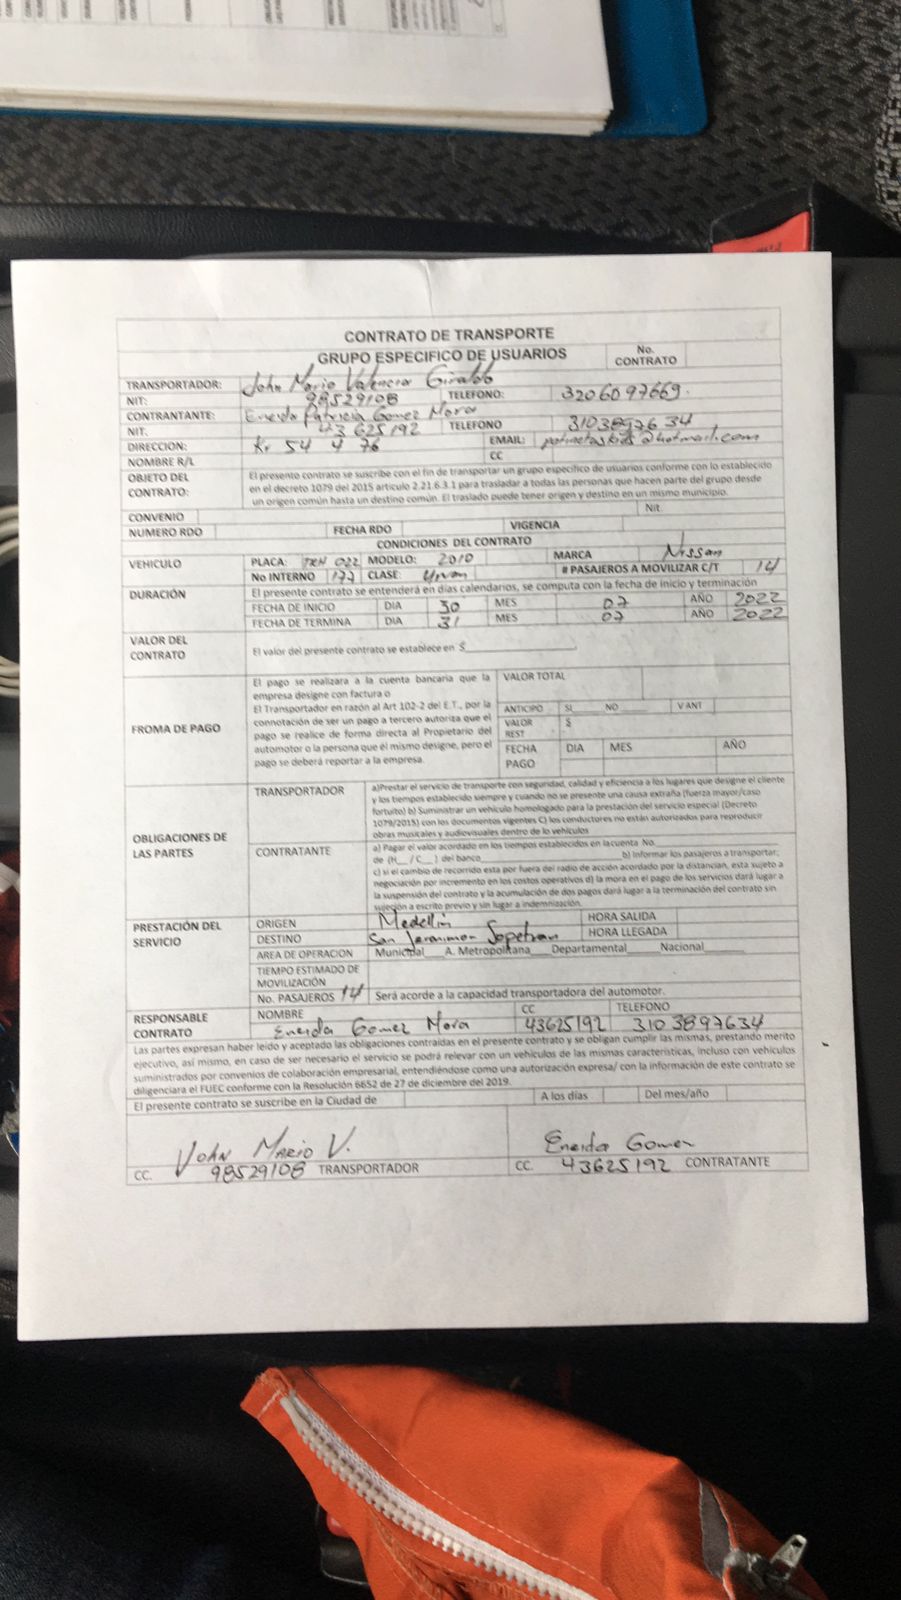 CONTRATO DE TRANSPORTE
GRUPO ESPECIFICO DE USUARIOS No. CONTRATO
TRANSPORTADOR: John Mario Valencia Giraldo
NIT: 98529108 TELEFONO: 3206097669.
CONTRANTANTE: Eneida Patricia Gomez Mora
NIT. 43625192 TELEFONO 3103897634
DIRECCION: Kr 54 4 76 EMAIL: @hotmail.com
NOMBRE R/L CC
OBJETO DEL CONTRATO: El presento contrato se suscribe con el fin de transportar un grupo especifico de usuarios conforme con lo establecido
en el decreto 1079 del 2015 articulo 2.21.6.3.1 para trasladar a todas las personas que hacen parte del grupo desde
un origen común hasta un destino común. El traslado puede tener origen y destino en un mismo municipio.
CONVENIO Nit.
NUMERO RDO FECHA RDO VIGENCIA
CONDICIONES DEL CONTRATO
VEHICULO PLACA: 022 MODELO: 2010 MARCA Nissan
No INTERNO 177 CLASE: Urvan # PASAJEROS A MOVILIZAR C/T 14
DURACIÓN El presente contrato se entenderá en días calendarios, se computa con la fecha de inicio y terminación
FECHA DE INICIO DIA 30 MES 07 AÑO 2022
FECHA DE TERMINA DIA 31 MES 07 AÑO 2022
VALOR DEL CONTRATO El valor del presente contrato se establece en $
FROMA DE PAGO El pago se realizara a la cuenta bancaria que la
empresa designe con factura o
El Transportador en razón al Art 102-2 del E.T., por la
connotación de ser un pago a tercero autoriza que el
pago se realice de forma directa al Propietario del
automotor o la persona que él mismo designe, pero el
pago se deberá reportar a la empresa.
VALOR TOTAL
ANTICIPO SI NO V ANT
VALOR REST $
FECHA PAGO DIA MES AÑO
OBLIGACIONES DE LAS PARTES
TRANSPORTADOR a)Prestar el servicio de transporte con seguridad, calidad y eficiencia a los lugares que designe el cliente
y los tiempos establecido siempre y cuando no se presente una causa extraña (fuerza mayor/caso
fortuito) b) Suministrar un vehículo homologado para la prestación del servicio especial (Decreto
1079/2015) con los documentos vigentes C) los conductores no están autorizados para reproducir
obras musicales y audiovisuales dentro de lo vehículos
CONTRATANTE a) Pagar el valor acordado en los tiempos establecidos en la cuenta No.
de (H__ / C__ ) del banco b) Informar los pasajeros a transportar;
c) si el cambio de recorrido esta por fuera del radio de acción acordado por la distancian, esta sujeto a
negociación por incremento en los costos operativos d) la mora en el pago de los servicios dará lugar a
la suspensión del contrato y la acumulación de dos pagos dará lugar a la terminación del contrato sin
sujeción a escrito previo y sin lugar a indemnización.
PRESTACIÓN DEL SERVICIO
ORIGEN Medellin HORA SALIDA
DESTINO San Jeronimon Sopetran HORA LLEGADA
AREA DE OPERACION Municipal___A. Metropolitana___Departamental_____Nacional_____
TIEMPO ESTIMADO DE MOVILIZACIÓN
No. PASAJEROS 14 Será acorde a la capacidad transportadora del automotor.
RESPONSABLE CONTRATO NOMBRE CC TELEFONO
Eneida Gomez Mora 43625192 3103897634
Las partes expresan haber leído y aceptado las obligaciones contraídas en el presente contrato y se obligan cumplir las mismas, prestando merito
ejecutivo, así mismo, en caso de ser necesario el servicio se podrá relevar con un vehículos de las mismas características, incluso con vehículos
suministrados por convenios de colaboración empresarial, entendiéndose como una autorización expresa/ con la información de este contrato se
diligenciara el FUEC conforme con la Resolución 6652 de 27 de diciembre del 2019.
El presente contrato se suscribe en la Ciudad de A los días Del mes/año
John Mario V. Eneida Gomez
CC. 98529108 TRANSPORTADOR CC. 43625192 CONTRATANTE